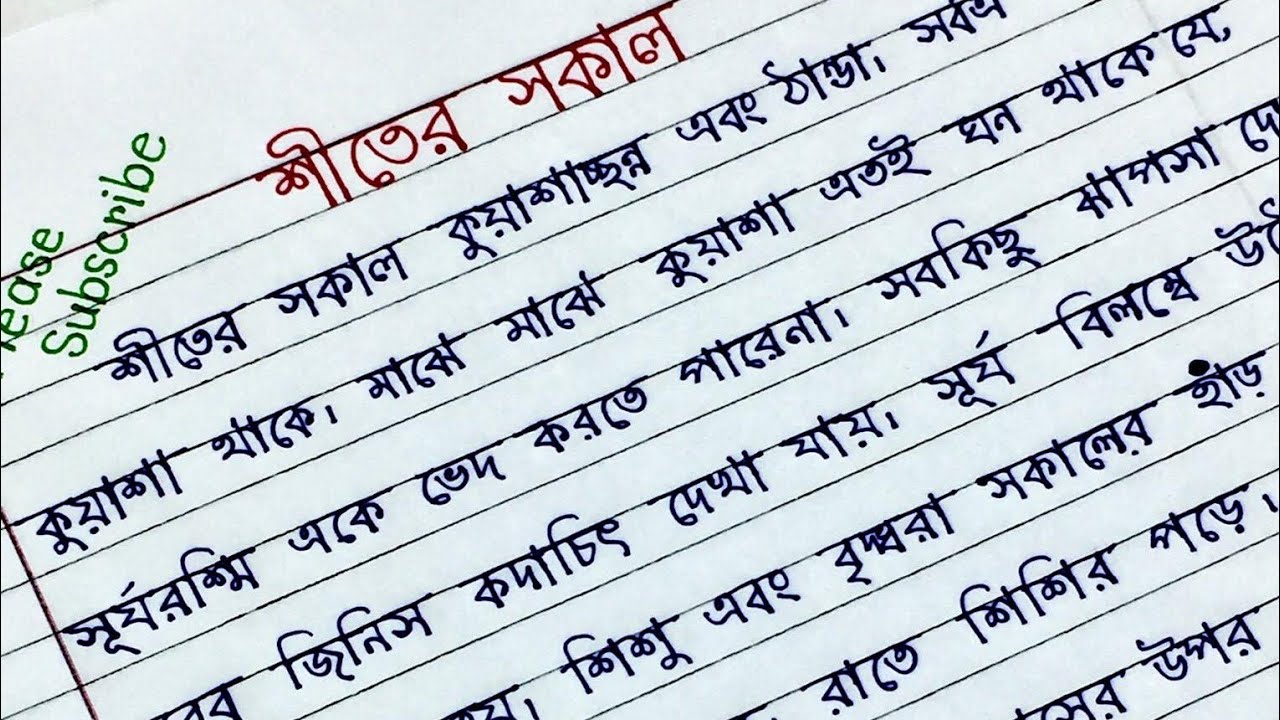 শীতের সকাল
Please
Subscribe
শীতের সকাল কুয়াশাচ্ছন্ন এবং ঠান্ডা। সর্বত্র
কুয়াশা থাকে। মাঝে মাঝে কুয়াশা এতই ঘন থাকে যে,
সূর্যরশ্মি একে ভেদ করতে পারেনা। সবকিছু ঝাপসা
জিনিস কদাচিৎ দেখা যায়। সূর্য বিলম্বে
শিশু এবং বৃদ্ধরা সকালের হাঁড়
রাতে শিশির পড়ে।
উপর